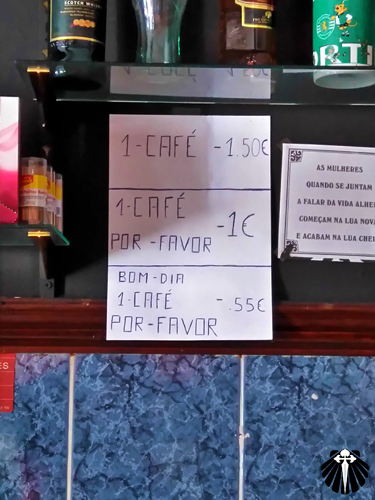 SCOTCH WHISKY
1-CAFÉ -1.50€
1-CAFÉ
POR-FAVOR -1€
BOM-DIA
1-CAFÉ -.55€
POR-FAVOR
AS MULHERES
QUANDO SE JUNTAM
A FALAR DA VIDA ALHEI
COMEÇAM NA LUA NOVA
E ACABAM NA LUA CHEI